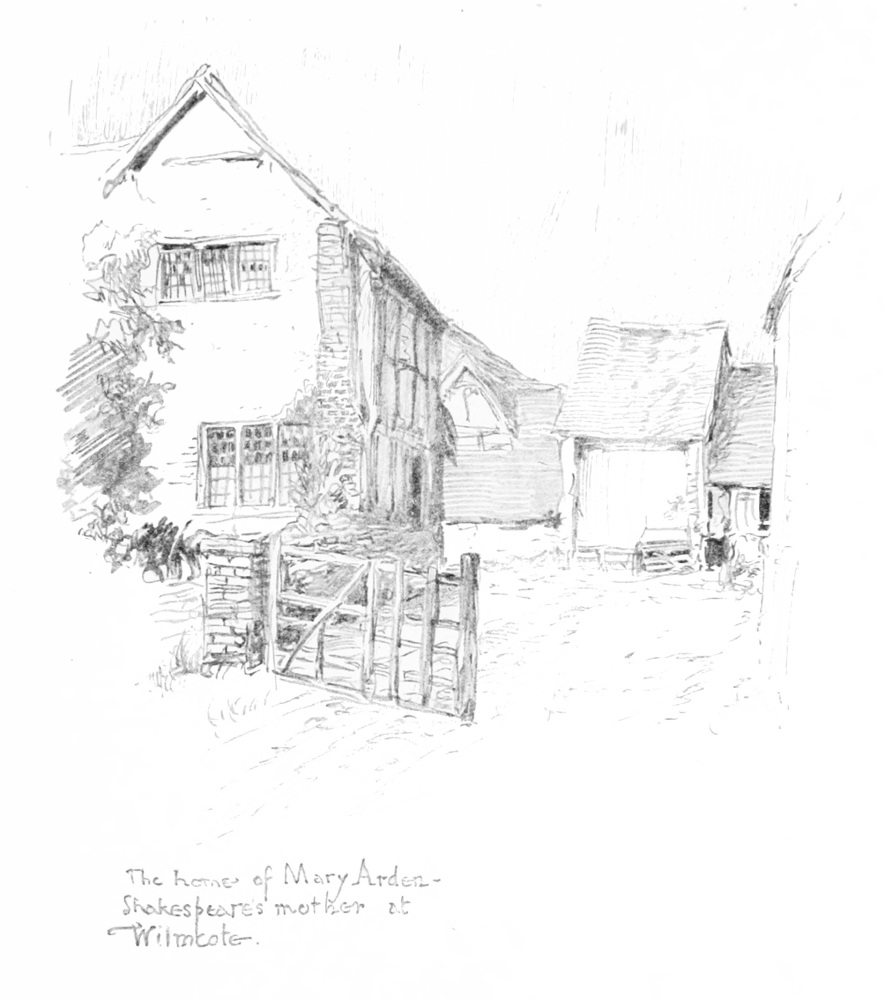 The home of Mary Arden-
Shakespeare's mother at
Wilmcote.